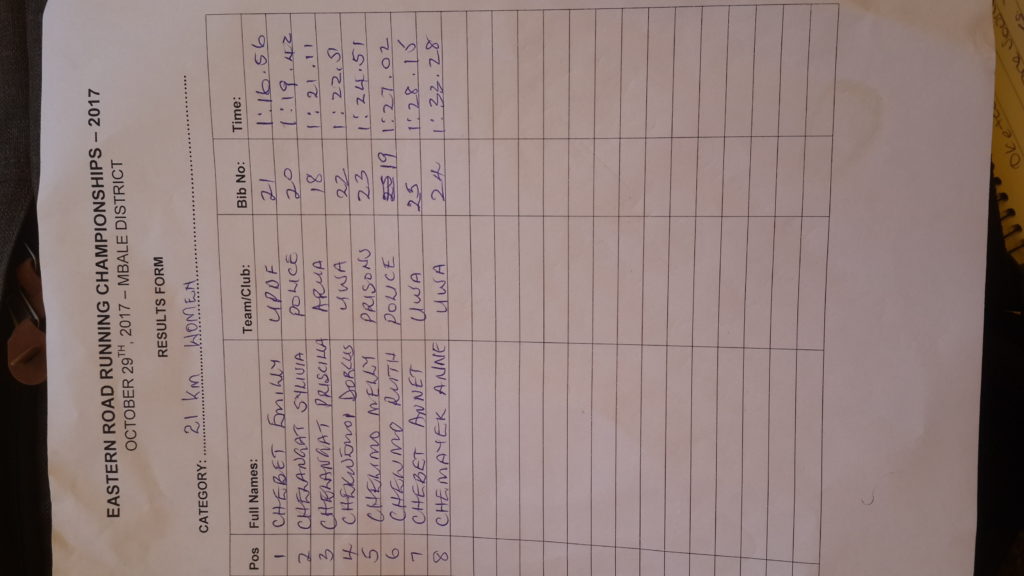 EASTERN ROAD RUNNING CHAMPIONSHIPS – 2017
OCTOBER 29TH, 2017 – MBALE DISTRICT
RESULTS FORM
CATEGORY: 21 Km WOMEN
Pos Full Names: Team/Club: Bib No: Time:
1 CHEBET EMILLY UPDF 21 1:16.56
2 CHELANGAT SYLVIA POLICE 20 1:19.42
3 CHELANGAT PRISCILLA ARUA 18 1:21.11
4 DORCUS UWA 22
5 CHEKUMO MELLY PRISONS 23 1:24.51
6 RUTH POLICE 19 1:27.02
7 CHEBET ANNET UWA 25 1:28.15
8 CHEMAYEK ANNE UWA 24